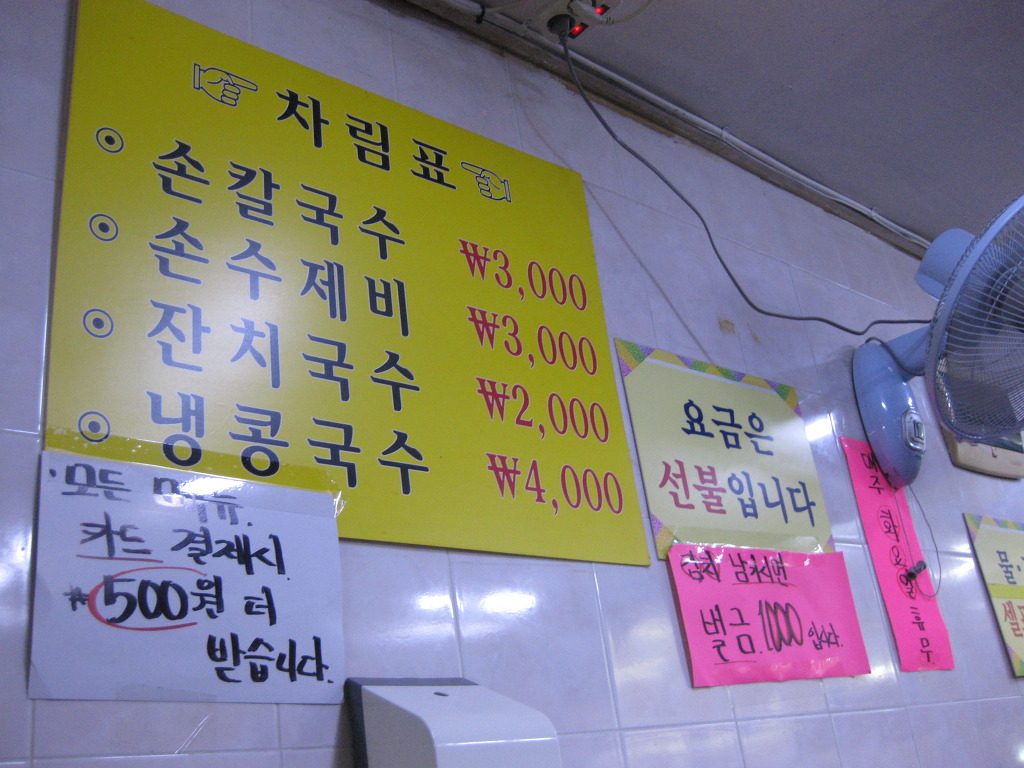 차림표
손칼국수 ₩3,000
손수제비 ₩3,000
잔치국수 ₩2,000
냉콩국수 ₩4,000
모든 메뉴
카드 결제시
₩500원 더
받습니다.
요금은
선불입니다
김치 남기시면
벌금 1000 입니다.
매주 휴무
물
셀